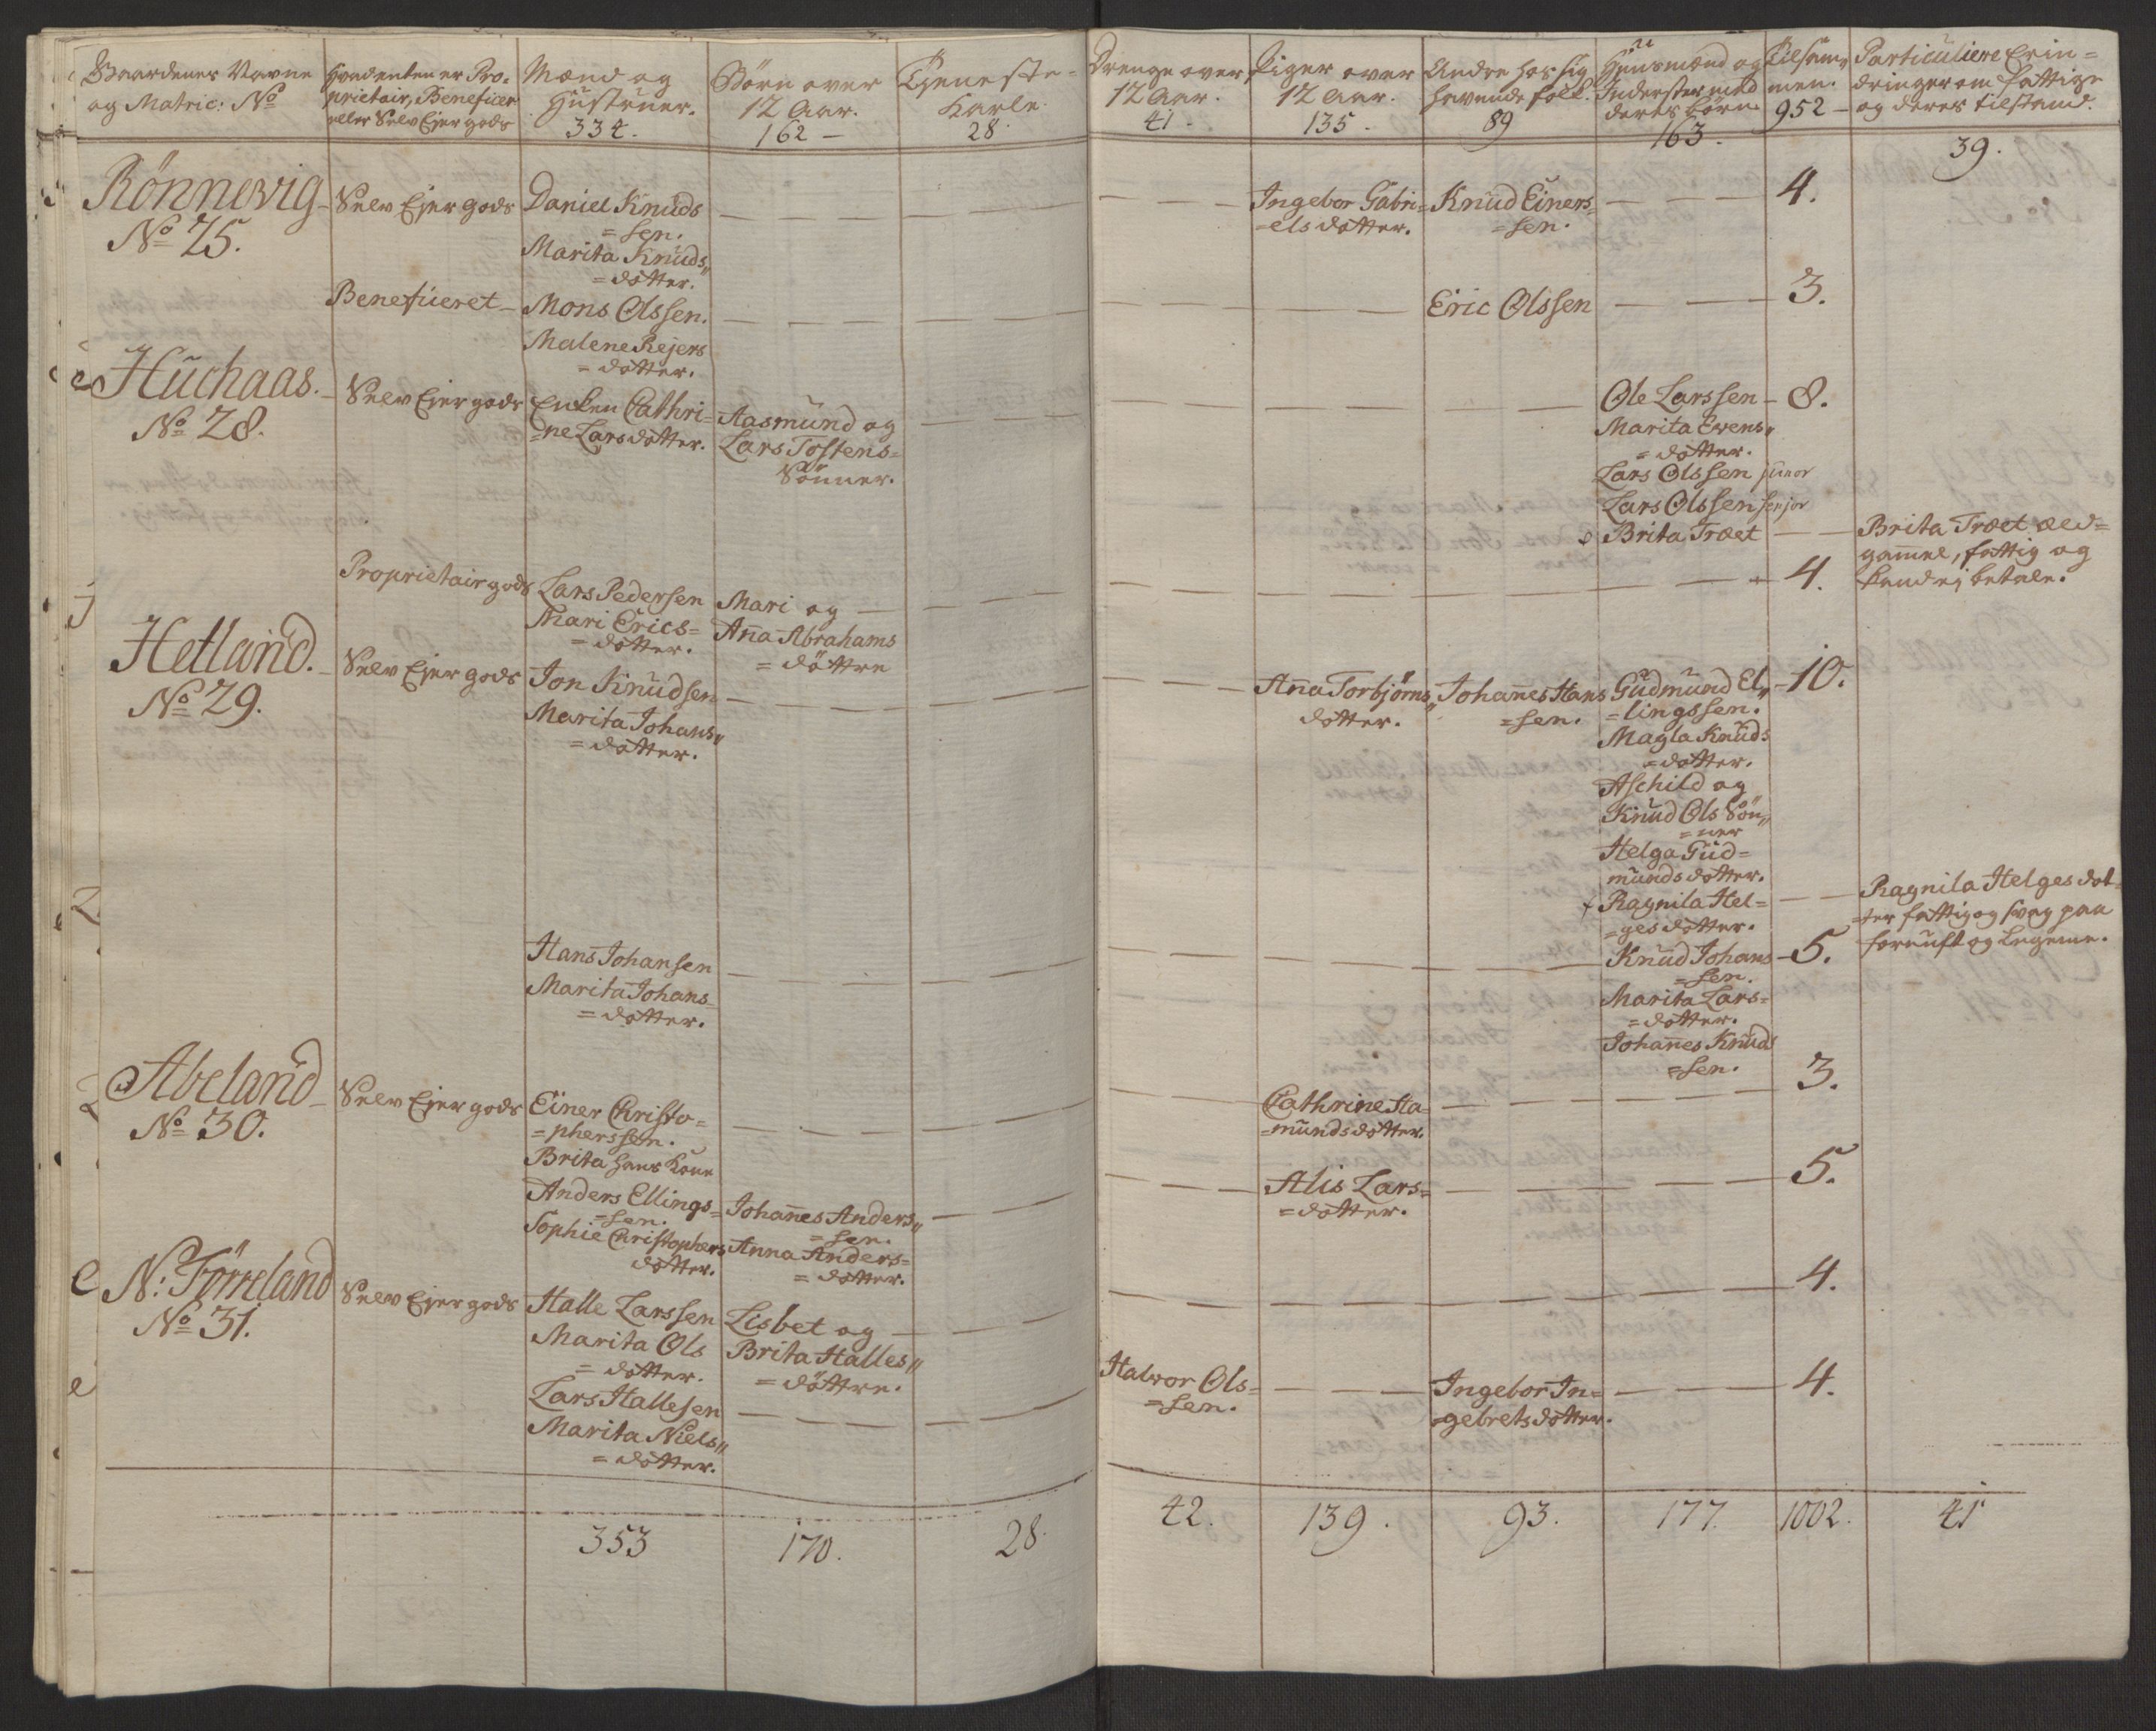 Gaardenes Navne
og Matric: No
Hvad enten er Pro-
prietair, Beneficer
eller Selv Ejer gods
Mænd og
Hustruer.
334.
Börn over
12 Aar.
162 –
Tjeneste-
Karle
28.
Drenge over
12 Aar.
41 -
Piger over
12 Aar.
135.
Andre hos sig
havende folk.
89
Huusmænd og
Inderster med
deres börn.
163.
Tilsam„
men.
952 –
Particuliere Erin=
dringer om fattige
og deres tilstand.
39.
Rönnevig –
No 25.
Selv Ejer gods
Daniel Knuds
=sen.
Marita Knuds„
=dotter.
Ingebor Gabri=
=elsdotter.
Knud Einers=
=sen.
4.
Beneficeret –
Mons Olssen.
Malene Rejers
=dotter.
Eric Olssen
3.
Huchaas. –
No 28.
Selv Ejer gods
Enken Cathri=
=ne Larsdotter.
Aasmund og
Lars Tostens=
Sönner.
Ole Larssen –
Marita Evens„
=dotter.
Lars Olssen junior
Lars Olssen senjor
Brita Træet
8.
Brita Træet æld=
gammel, fattig og
kand ej betale.
Proprietair gods
Lars Pedersen
Mari Erics=
=dotter.
Mari og
Anna Abrahams
=döttre
4.
Hetland. –
No 29.
Selv Ejer gods
Jon Knudsen
Marita Johans„
=dotter.
Anna Torbjörns„
dotter.
Johannes Hans
=sen.
Gudmund El„
=lingssen.
Magla Knuds
=dotter.
Aschild og
Knud Ols Sön„
=ner
Helga Gud=
mundsdotter.
Ragnila Hel=
=gesdotter.
10.
Ragnila Helgesdot=
=ter fattig og svag paa
fornuft og Legeme.
Hans Johansen
Marita Johans=
=dotter.
Knud Johans
=sen.
Marita Lars=
=dotter.
Johannes Knuds
=sen.
5.
Abeland –
No 30.
Selv Ejer gods
Einer Christo=
=pherssen.
Brita hans Kone
Cathrine Aa=
=mundsdotter.
3.
Anders Ellings=
=sen.
Sophie Christophers
dotter.
Johannes Anders„
=sen.
Anna Anders=
=dotter.
Alis Lars=
=dotter.
5.
N: Förreland
No 31.
Selv Ejer gods
Halle Larssen
Marita Ols
=dotter.
Lisbet og
Brita Halles„
=döttre.
4.
Lars Hallesen
Marita Niels„
=dotter.
Halvor Ols=
=sen.
Ingebor In=
=gebretsdotter.
4.
353
170.
28.
42.
139.
93.
177.
1002.
41